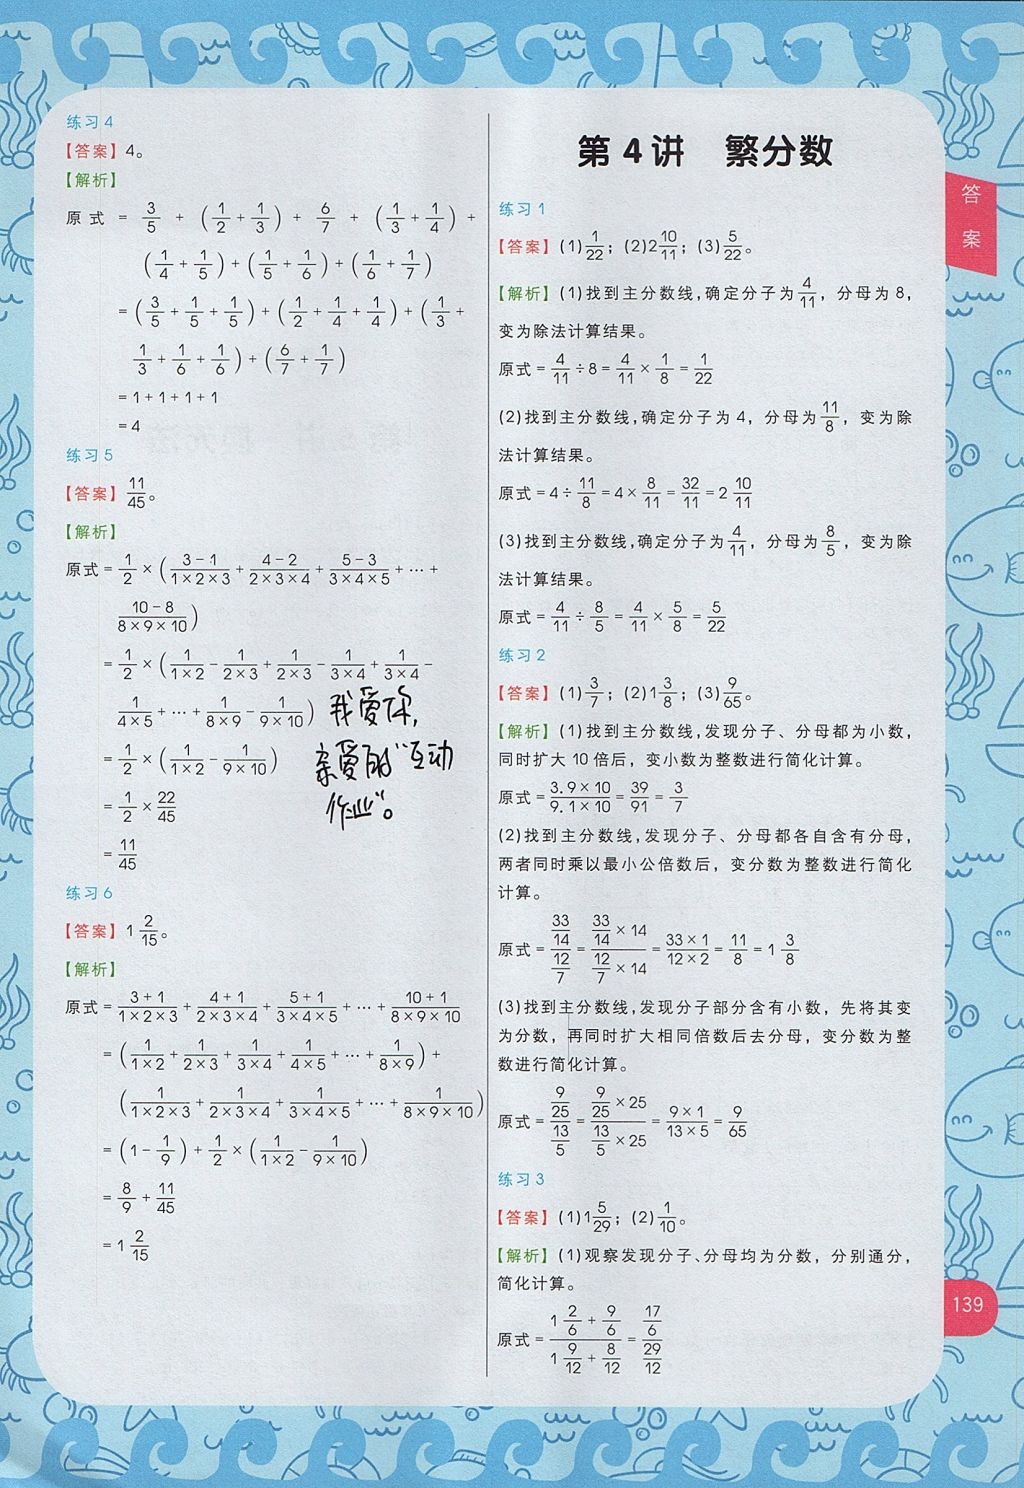 练习4
【答案】4。
【解析】
原式 = 3/5 + (1/2 + 1/3) + 6/7 + (1/3 + 1/4) +
(1/4 + 1/5) + (1/5 + 1/6) + (1/6 + 1/7)
= (3/5 + 1/5 + 1/5) + (1/2 + 1/4 + 1/4) + (1/3 +
1/3 + 1/6 + 1/6) + (6/7 + 1/7)
= 1 + 1 + 1 + 1
= 4
练习5
【答案】11/45。
【解析】
原式 = 1/2 × ((3-1)/(1×2×3) + (4-2)/(2×3×4) + (5-3)/(3×4×5) + … +
(10-8)/(8×9×10))
= 1/2 × (1/(1×2) - 1/(2×3) + 1/(2×3) - 1/(3×4) + 1/(3×4) -
1/(4×5) + … + 1/(8×9) - 1/(9×10))
我爱你,
= 1/2 × (1/(1×2) - 1/(9×10))
亲爱的“互动
= 1/2 × 22/45
作业”。
= 11/45
练习6
【答案】1 2/15。
【解析】
原式 = (3+1)/(1×2×3) + (4+1)/(2×3×4) + (5+1)/(3×4×5) + … + (10+1)/(8×9×10)
= (1/(1×2) + 1/(2×3) + 1/(3×4) + 1/(4×5) + … + 1/(8×9)) +
(1/(1×2×3) + 1/(2×3×4) + 1/(3×4×5) + … + 1/(8×9×10))
= (1 - 1/9) + 1/2 × (1/(1×2) - 1/(9×10))
= 8/9 + 11/45
= 1 2/15
第4讲 繁分数
练习1
【答案】(1)1/22；(2)2 10/11；(3)5/22。
【解析】(1)找到主分数线,确定分子为4/11，分母为8,
变为除法计算结果。
原式 = 4/11 ÷ 8 = 4/11 × 1/8 = 1/22
(2)找到主分数线,确定分子为4，分母为11/8，变为除
法计算结果。
原式 = 4 ÷ 11/8 = 4 × 8/11 = 32/11 = 2 10/11
(3)找到主分数线,确定分子为4/11，分母为8/5，变为除
法计算结果。
原式 = 4/11 ÷ 8/5 = 4/11 × 5/8 = 5/22
练习2
【答案】(1)3/7；(2)1 3/8；(3)9/65。
【解析】(1)找到主分数线,发现分子、分母都为小数,
同时扩大10倍后，变小数为整数进行简化计算。
原式 = (3.9×10)/(9.1×10) = 39/91 = 3/7
(2)找到主分数线,发现分子、分母都各自含有分母,
两者同时乘以最小公倍数后，变分数为整数进行简化
计算。
原式 = (33/14)/(12/7) = (33/14 × 14)/(12/7 × 14) = (33×1)/(12×2) = 11/8 = 1 3/8
(3)找到主分数线,发现分子部分含有小数，先将其变
为分数，再同时扩大相同倍数后去分母，变分数为整
数进行简化计算。
原式 = (9/25)/(13/5) = (9/25 × 25)/(13/5 × 25) = (9×1)/(13×5) = 9/65
练习3
【答案】(1)1 5/29；(2)1/10。
【解析】(1)观察发现分子、分母均为分数，分别通分,
简化计算。
原式 = (1 2/6 + 9/6)/(1 9/12 + 8/12) = (17/6)/(29/12)
答案
139